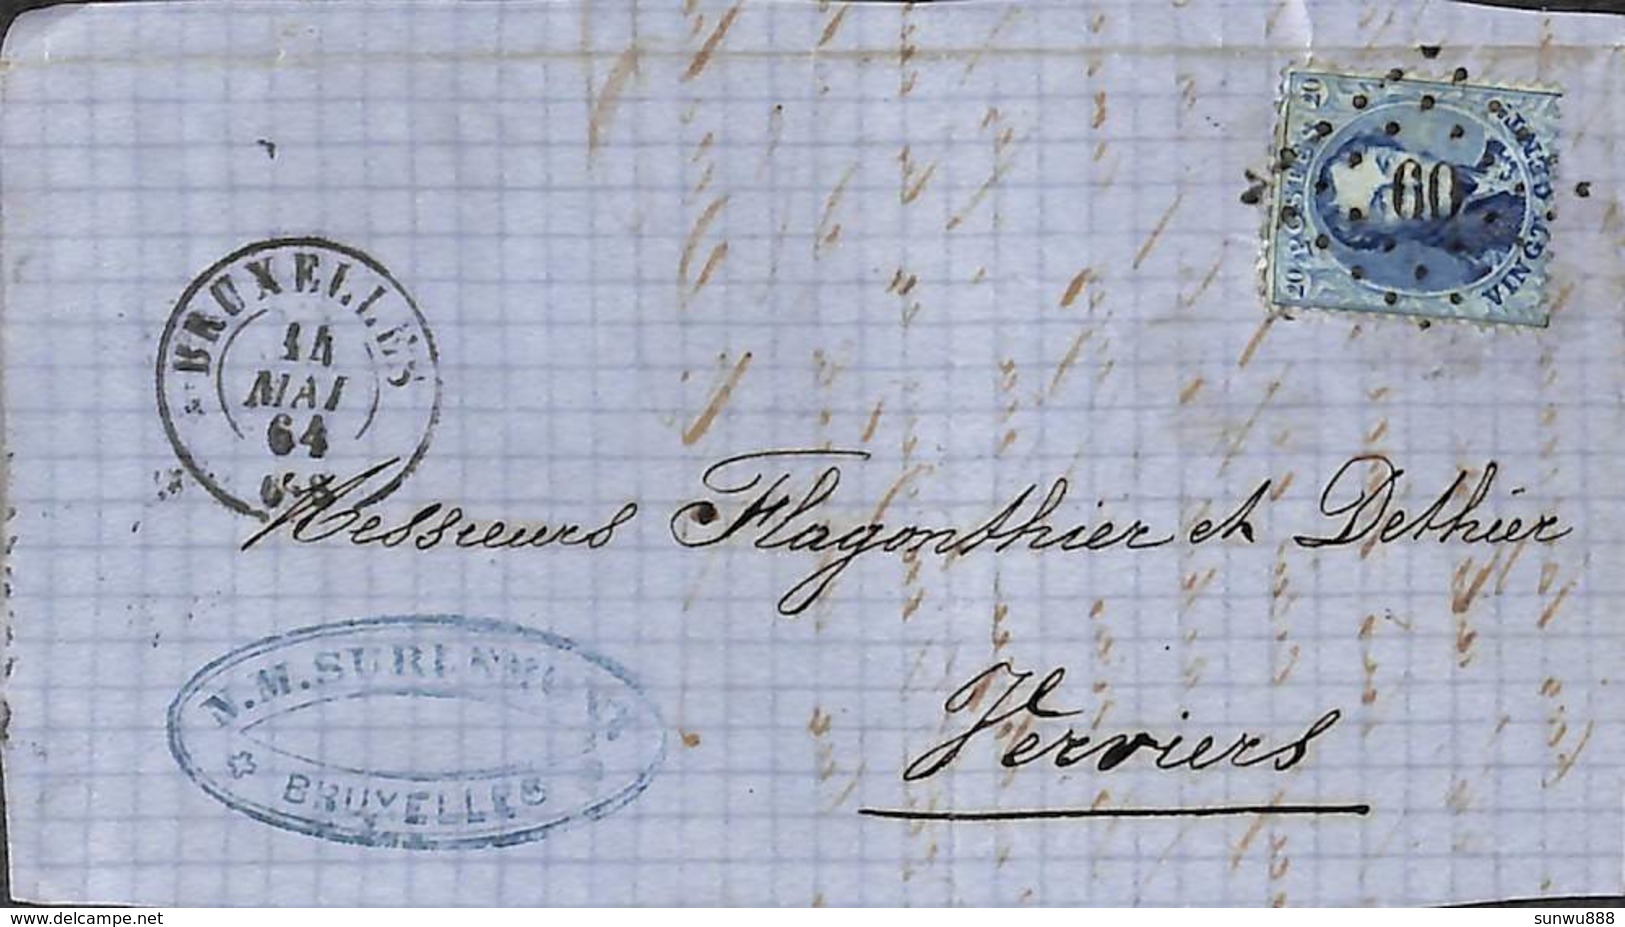 20 POSTES 20
VINGT CENT.
60
BRUXELLES
14
MAI
64
Messieurs Flagonthier et Dethier
Verviers
N.M.
BRUXELLES
© delcampe.net
sunwu888